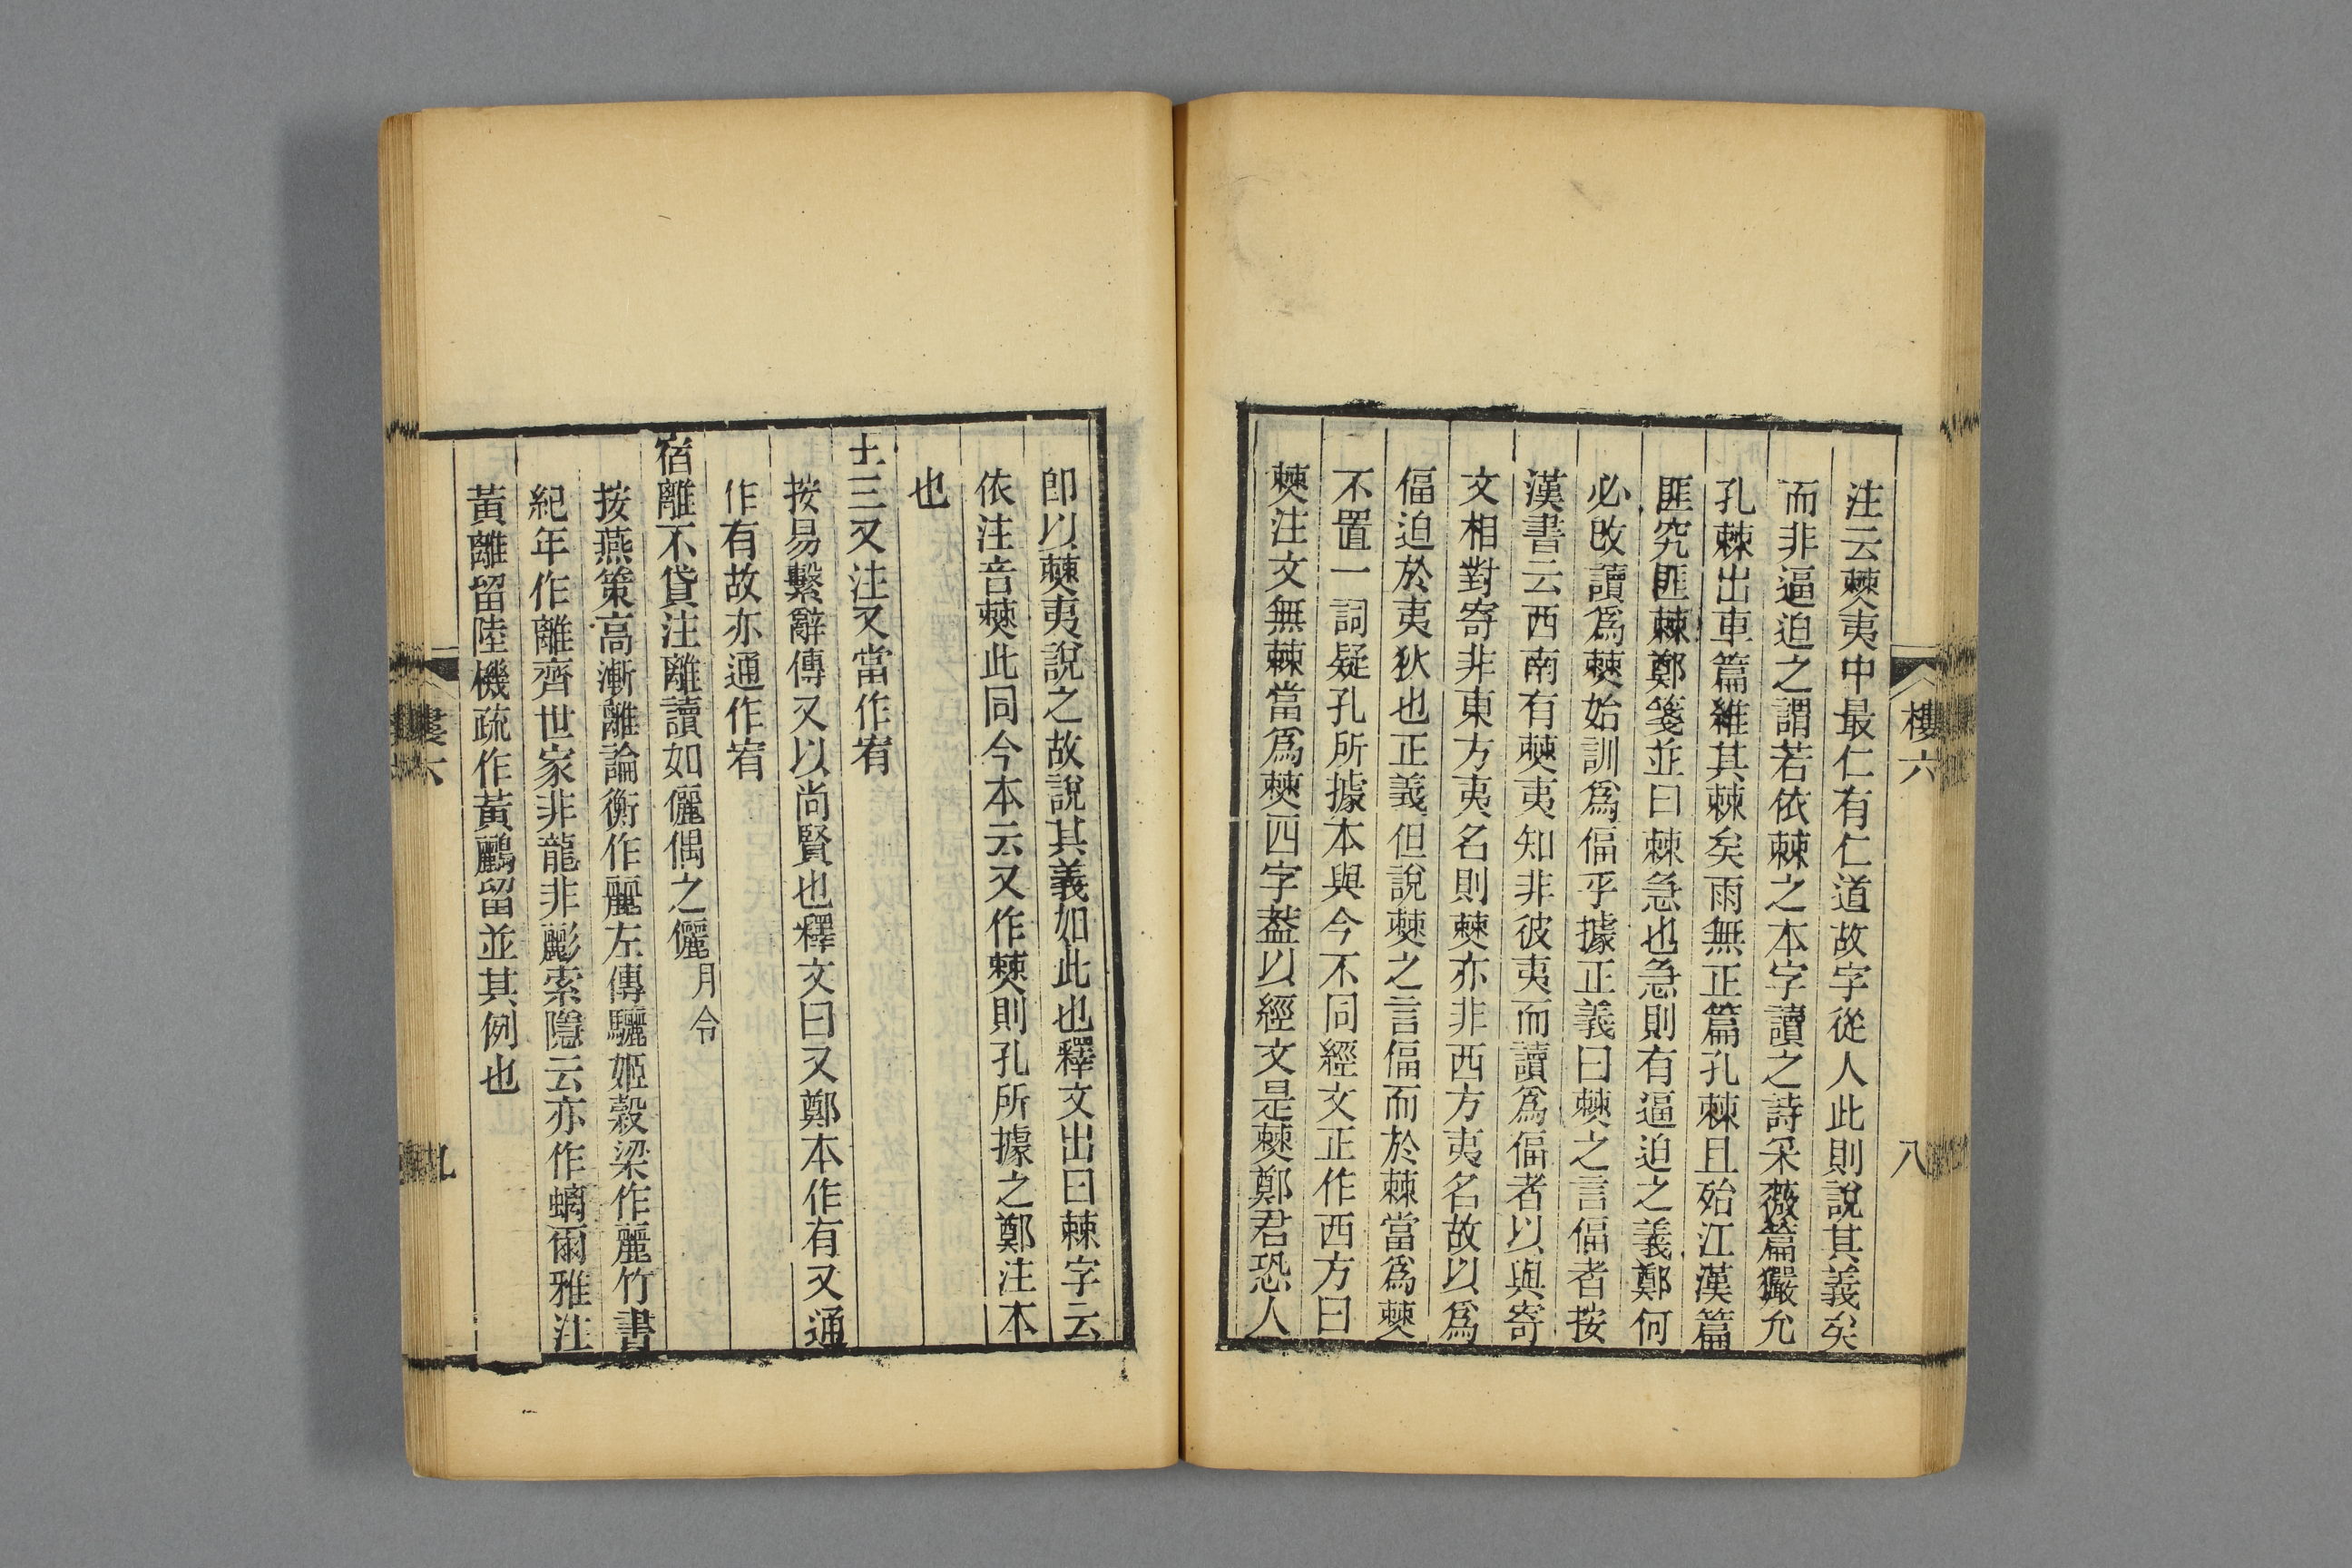 注云僰夷中最仁有仁道故字從人此則說其義矣
而非逼迫之謂若依棘之本字讀之詩采薇篇玁允
孔棘出車篇維其棘矣雨無正篇孔棘且殆江漢篇
匪究匪棘鄭箋並曰棘急也急則有逼迫之義鄭何
必改讀爲僰始訓爲偪乎據正義曰僰之言偪者按
漢書云西南有僰夷知非彼夷而讀爲偪者以與寄
文相對寄非東方夷名則僰亦非西方夷名故以爲
偪迫於夷狄也正義但說僰之言偪而於棘當爲僰
不置一詞疑孔所據本與今不同經文正作西方曰
僰注文無棘當爲僰四字葢以經文是僰鄭君恐人
樓六
八
卽以僰夷說之故說其義如此也釋文出曰棘字云
依注音僰此同今本云又作僰則孔所據之鄭注本
也
王三又注又當作宥
按易繫辭傳又以尚賢也釋文曰又鄭本作有又通
作有故亦通作宥
宿離不貸注離讀如儷偶之儷月令
按燕策高漸離論衡作麗左傳驪姬榖梁作麗竹書
紀年作離齊世家非龍非彲索隱云亦作螭爾雅注
黃離留陸機疏作黃鸝留並其例也
六
九